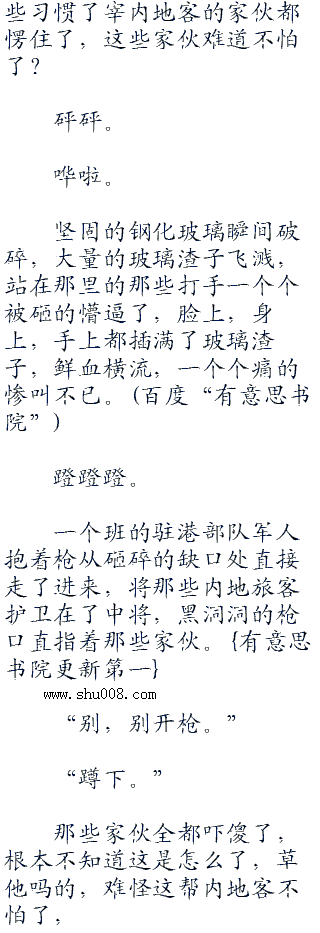 些习惯了宰内地客的家伙都
愣住了，这些家伙难道不怕
了？
砰砰。
哗啦。
坚固的钢化玻璃瞬间破
碎，大量的玻璃渣子飞溅，
站在那里的那些打手一个个
被砸的懵逼了，脸上，身
上，手上都插满了玻璃渣
子，鲜血横流，一个个痛的
惨叫不已。(百度“有意思书
院”)
蹬蹬蹬。
一个班的驻港部队军人
抱着枪从砸碎的缺口处直接
走了进来，将那些内地旅客
护卫在了中将，黑洞洞的枪
口直指着那些家伙。{有意思
书院更新第一}
www.shu008.com
“别，别开枪。”
“蹲下。”
那些家伙全都吓傻了，
根本不知道这是怎么了，草
他吗的，难怪这帮内地客不
怕了，